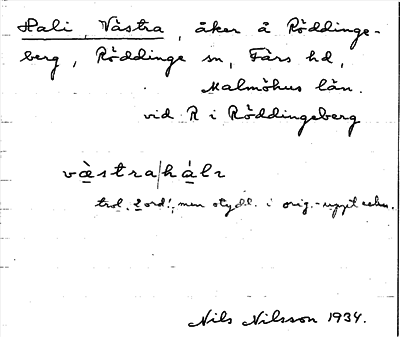 Hali, Västra, åker å Röddinge-
berg, Röddinge sn, Färs hd,
Malmöhus län.
vid R i Röddingeberg
västra/háli
trol. 2 ord!, men otydl. i orig.-uppt
Nils Nilsson 1934.